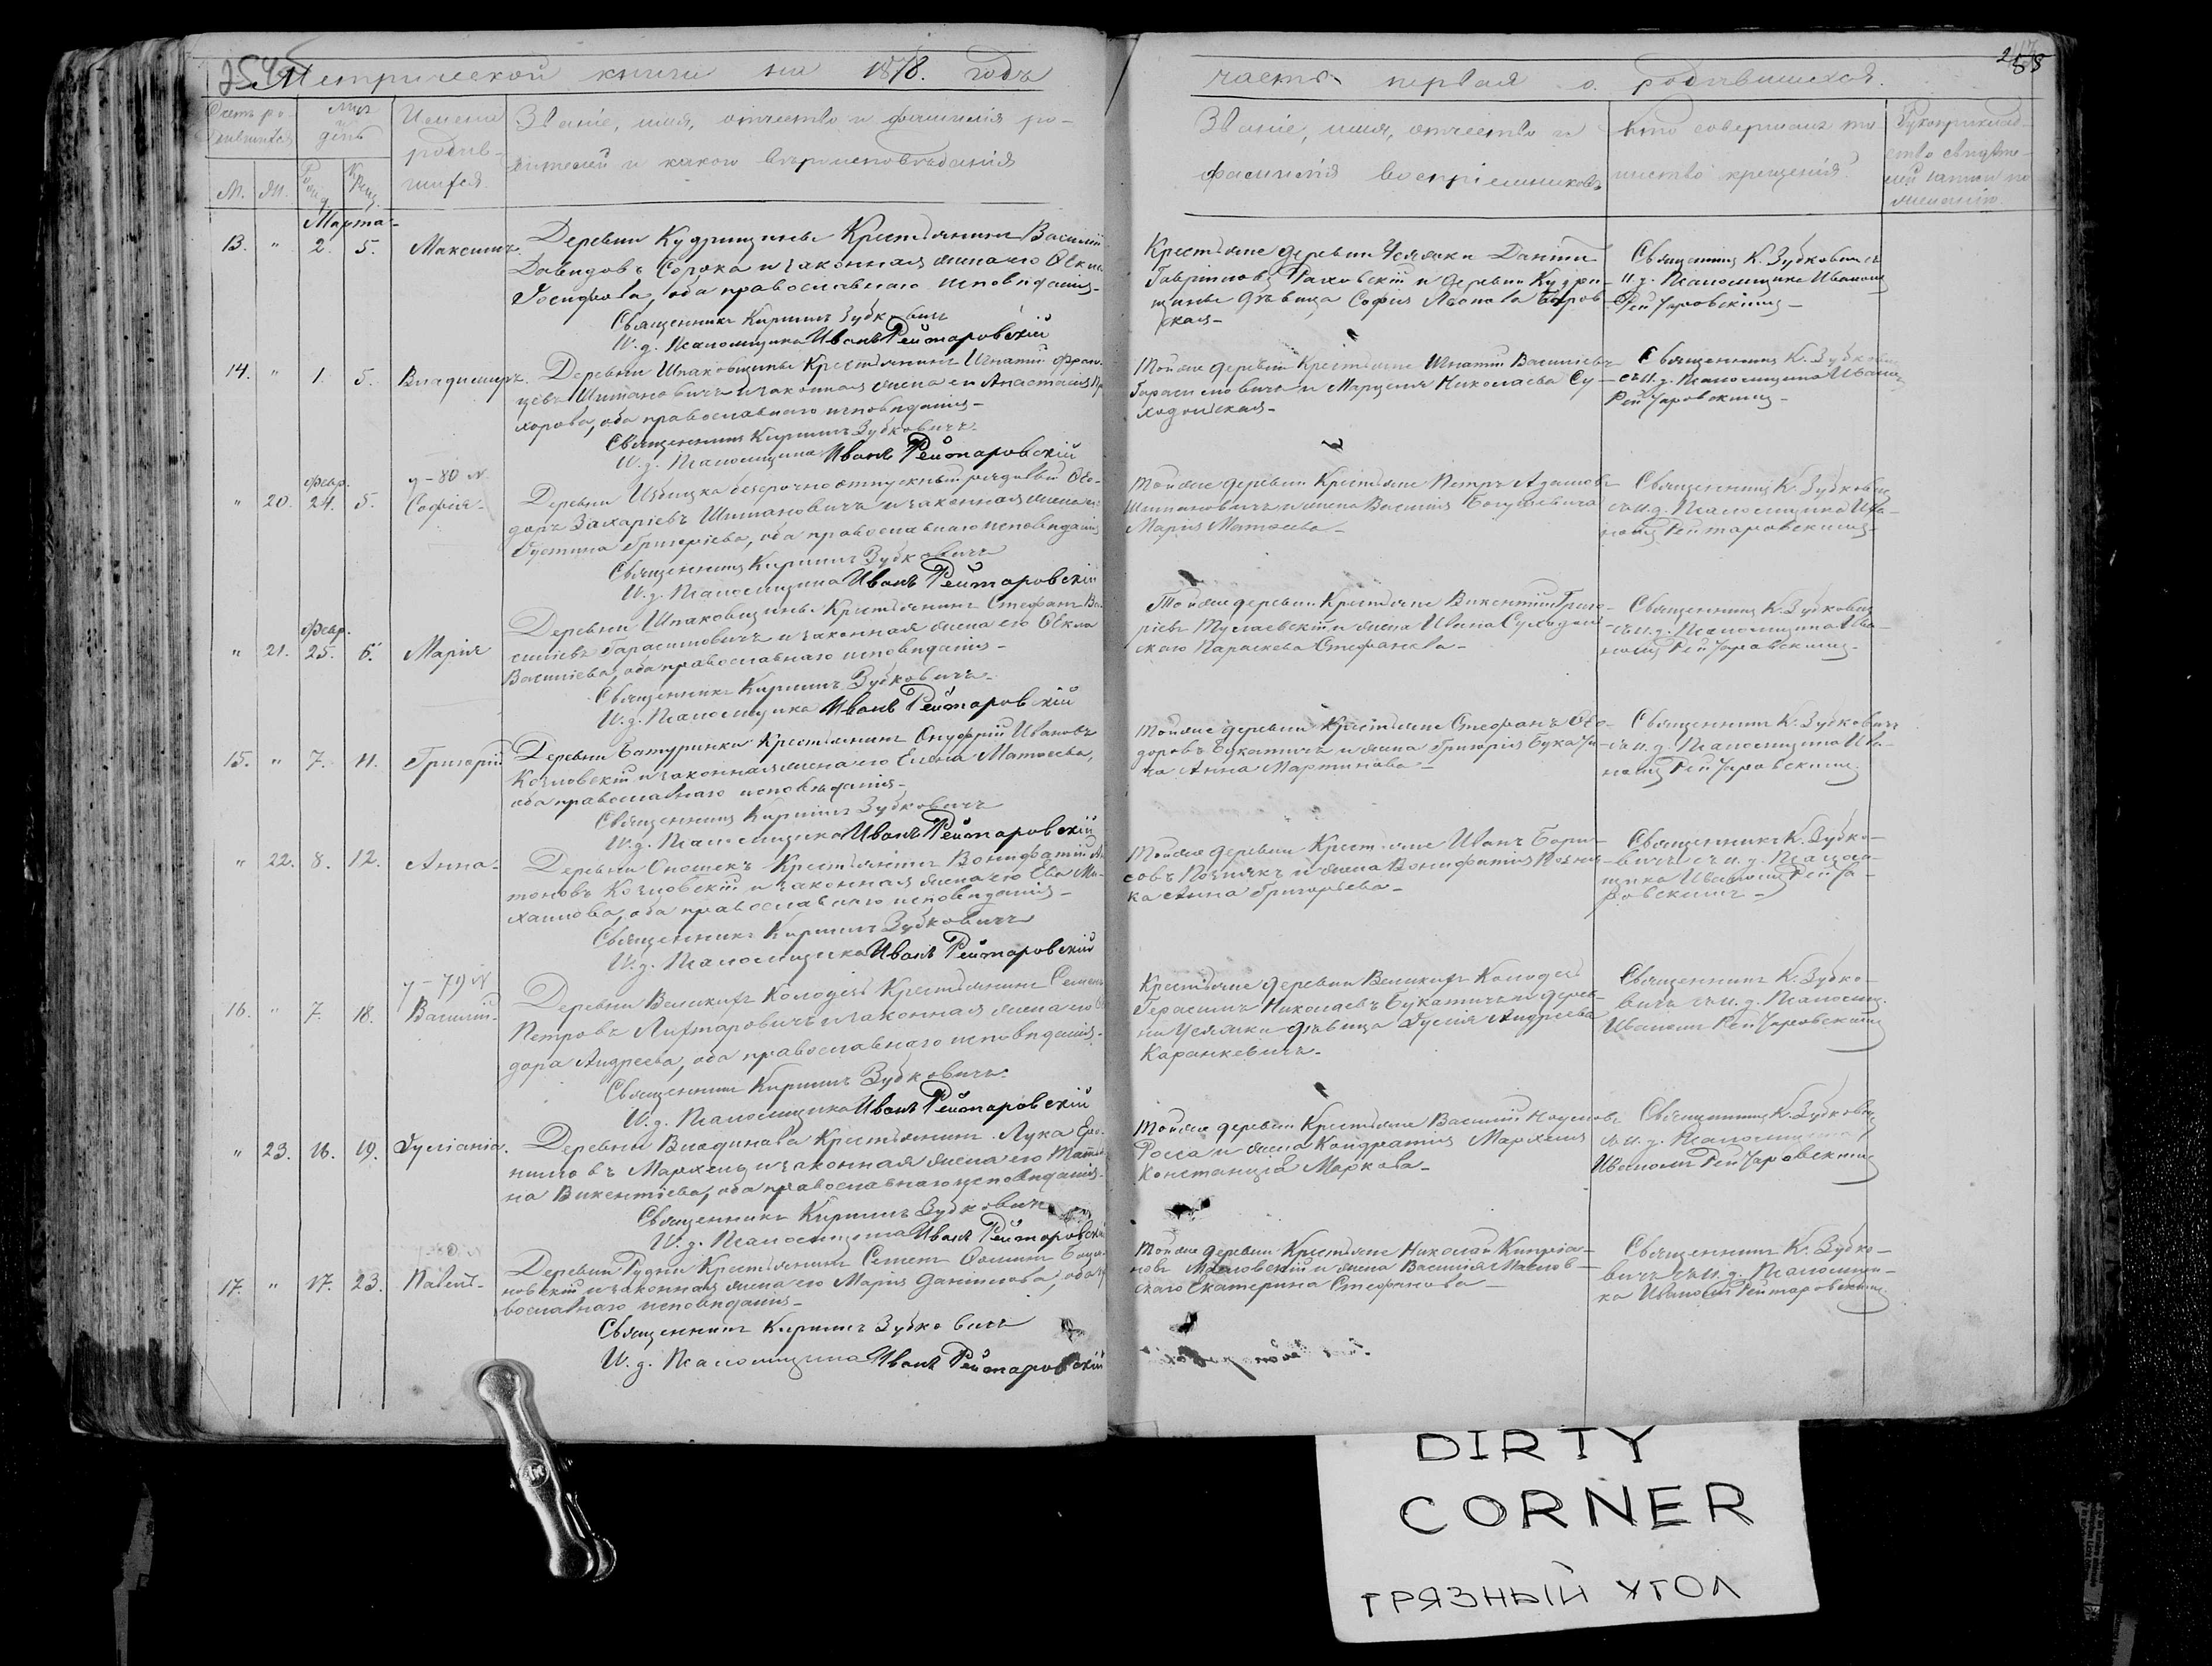 Метрической книги на 1878. годъ
часть первая о родившихся.
Счетъ ро-
день
Имена
родив-
шихся.
Званіе, имя, отчество и фамилія ро-
дителей и какого вѣроисповѣданія
Званіе, имя, отчество и
фамилія воспріемниковъ
Кто совершалъ та
инство крещенія
М.
Марта
13. " 2. 5. Максимъ.
Деревни Кудрищины Крестьянинъ Василій
Давидовъ Сорока и законная жена его
Іосифова, оба православнаго исповѣданія
Священникъ Кириллъ Зубковичъ
И. д. Псаломщика Иванъ Рейтаровскій
Крестьяне деревни Усяжи
Гавріиловъ и деревни Кудри-
щины дѣвица Софія
ская
Священникъ К. Зубковичъ съ
и. д. Псаломщика Иваномъ
Рейтаровскимъ
14. " 1. 5. Владимиръ.
Деревни Шпаковщины Крестьянинъ Игнатій Фран-
цевъ Шимановичъ и законная жена его Анастасія
хорова, оба православнаго исповѣданія
Священникъ Кириллъ Зубковичъ
И. д. Псаломщика Иванъ Рейтаровскій
Той же деревни Крестьяне Игнатій Василіевъ
Гарасимовичъ и Марцеля Николаева Су-
ходольская
Священникъ К. Зубковичъ
съ и. д. Псаломщика Иваномъ
Рейтаровскимъ
февр. у-80 №
" 20. 24. 5. Софія
Деревни Избицка безсрочно отпускный рядовый Ѳео-
доръ Захаріевъ Шимановичъ и законная жена его
Густина Григоріева, оба православнаго исповѣданія
Священникъ Кириллъ Зубковичъ
И. д. Псаломщика Иванъ Рейтаровскій
Той же деревни Крестьяне Петръ Адамовъ
Шимановичъ и жена Василія Богушевича
Марія Матѳеева
Священникъ К. Зубковичъ
съ и. д. Псаломщика Ива-
номъ Рейтаровскимъ
февр.
" 21. 25. 6. Марія
Деревни Шпаковщины Крестьянинъ Стефанъ Ва-
силіевъ Гарасимовичъ и законная жена его Ѳекла
Василіева, оба православнаго исповѣданія
Священникъ Кириллъ Зубковичъ
И. д. Псаломщика Иванъ Рейтаровскій
Той же деревни Крестьяне Викентій Григо-
ріевъ и жена Ивана Суходоль-
скаго Параскева Стефанова
Священникъ К. Зубковичъ
съ и. д. Псаломщика Ива-
номъ Рейтаровскимъ
15. " 7. 11. Григорій
Деревни Батуринки Крестьянинъ Онуфрій Ивановъ
Козловскій и законная жена его Елена Матѳеева,
оба православнаго исповѣданія
Священникъ Кириллъ Зубковичъ
И. д. Псаломщика Иванъ Рейтаровскій
Той же деревни Крестьяне Стефанъ Ѳео-
доровъ Букатичъ и жена Григорія Букати-
ча Анна Мартинова
Священникъ К. Зубковичъ
съ и. д. Псаломщика Ива-
номъ Рейтаровскимъ
" 22. 8. 12. Анна
Деревни Крестьянинъ Вонифатій Ан-
тоновъ Козловскій и законная жена его Ева Ми-
хаилова, оба православнаго исповѣданія
Священникъ Кириллъ Зубковичъ
И. д. Псаломщика Иванъ Рейтаровскій
Той же деревни Крестьяне Иванъ Бори-
совъ Познякъ и жена Вонифатія Позня-
ка Анна Григорьева
Священникъ К. Зубко-
вичъ съ и. д. Псалом-
щика Иваномъ Рейта-
ровскимъ
у-79 №
16. " 7. 18. Василій
Деревни Великихъ Колодезь Крестьянинъ Семенъ
Петровъ Лихтаровичъ и законная жена его
дора Андреева, оба православнаго исповѣданія
Священникъ Кириллъ Зубковичъ
И. д. Псаломщика Иванъ Рейтаровскій
Крестьяне деревни Великихъ Колодезь
Герасимъ Николаевъ Букатичъ и дерев-
ни Усяжи дѣвица Андреева
Каранкевичъ
Священникъ К. Зубко-
вичъ съ и. д. Псаломщ.
Иваномъ Рейтаровскимъ
" 23. 16. 19. Іуліанія.
Деревни Крестьянинъ Лука
и законная жена его
на Викентіева, оба православнаго исповѣданія
Священникъ Кириллъ Зубковичъ
И. д. Псаломщика Иванъ Рейтаровскій
Той же деревни Крестьяне Василій Наумовъ
Росса и жена Кондратія
Констанція Маркова
Священникъ К. Зубковичъ
съ и. д. Псаломщика
Иваномъ Рейтаровскимъ
17. " 17. 23. Павелъ
Деревни Рудни Крестьянинъ Семенъ
новскій и законная жена его Марія Данилова, оба пра-
вославнаго исповѣданія
Священникъ Кириллъ Зубковичъ
И. д. Псаломщика Иванъ Рейтаровскій
Той же деревни Крестьяне Николай Кипріа-
новъ и жена Василія
скаго Екатерина Стефанова
Священникъ К. Зубко-
вичъ съ и. д. Псаломщи-
ка Иваномъ Рейтаровскимъ
DIRTY
CORNER
ГРЯЗНЫЙ УГОЛ